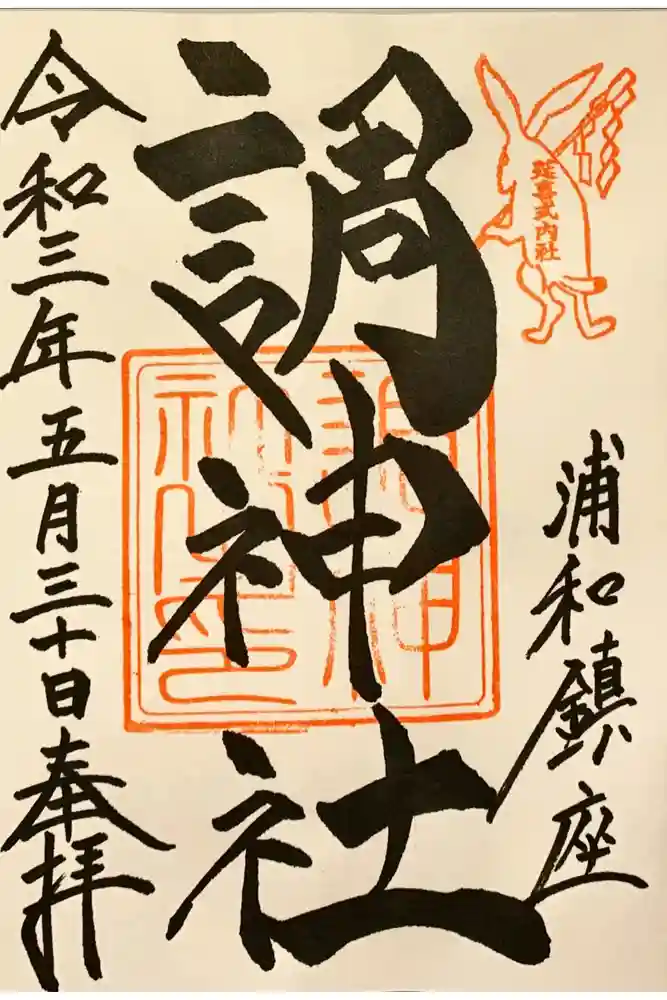 延喜式内社
浦和鎮座
調神社
調神
社之印
令和三年五月三十日奉拝